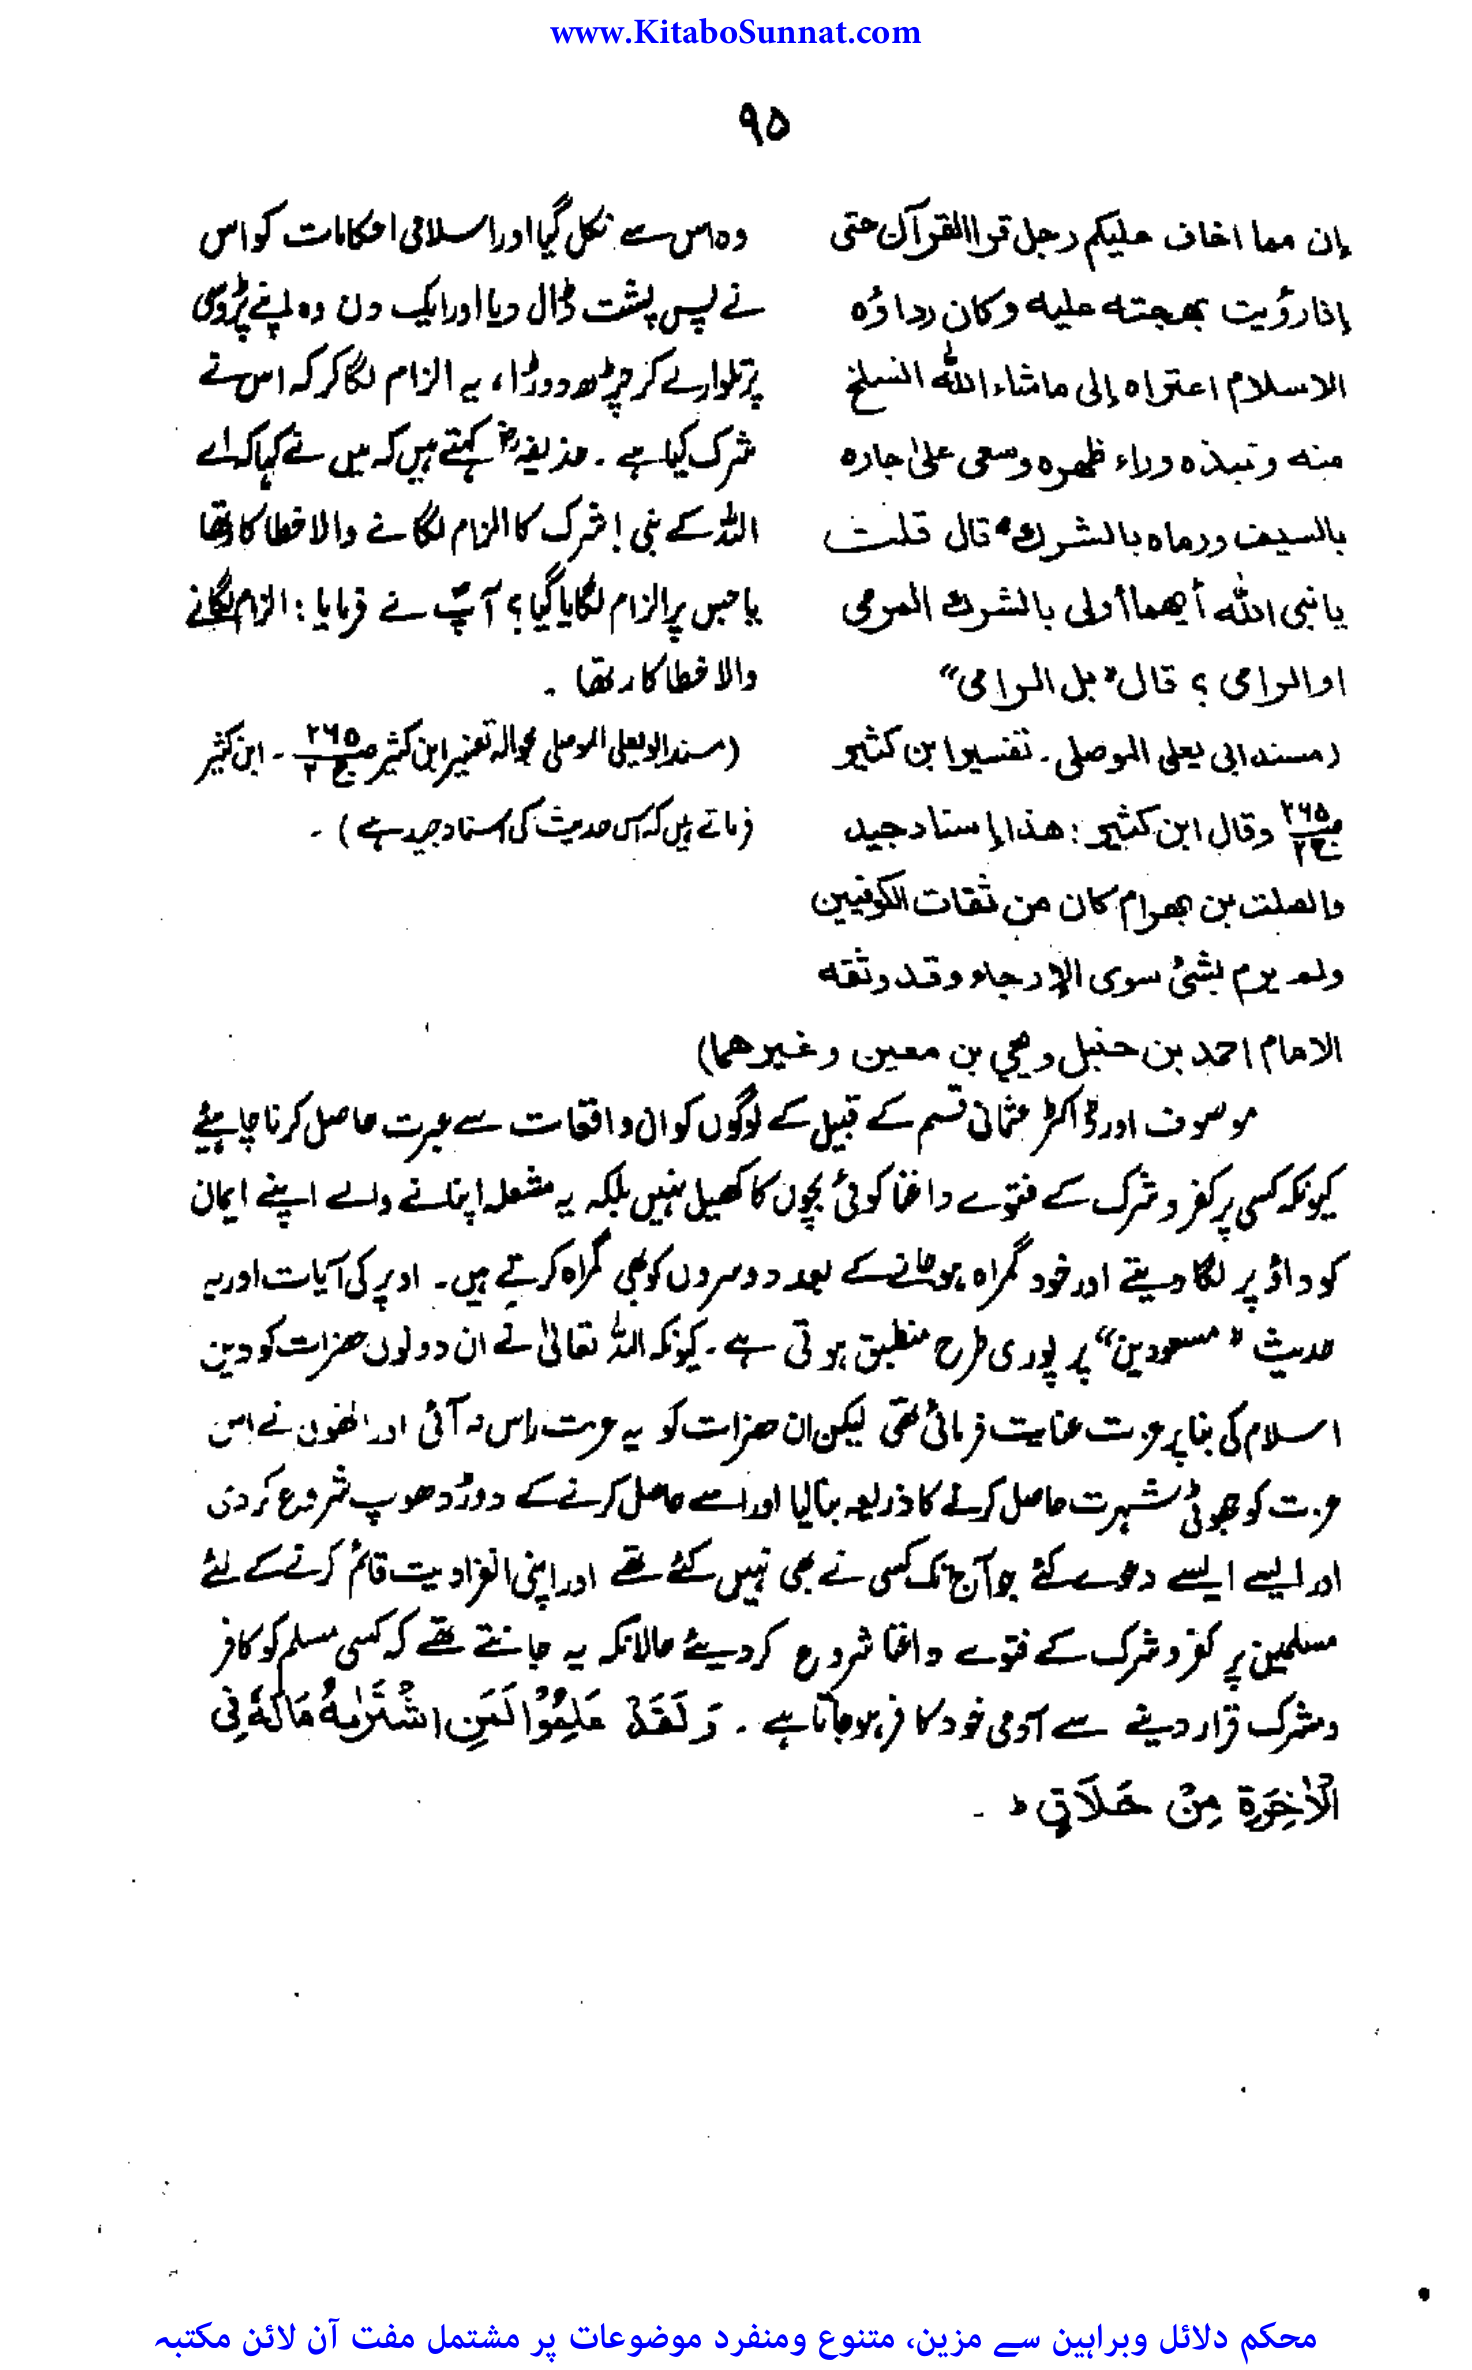 www.KitaboSunnat.com
۹۵
إن مما اخاف عليكم رجل قرا القرآن حتى
إذا رؤيت بهجته عليه وكان رداؤه
الاسلام اعتراه إلى ماشاء الله انسلخ
منه ونبذه وراء ظهره وسعى على جاره
بالسيف ورماه بالشرك" قال قلت
يا نبي الله أيهما أولى بالشرك المرمي
او الرامي ؟ قال "بل الرامي"
(مسند ابي يعلى الموصلى۔ تفسير ابن كثير
ص۲۶۵ ج۲ وقال ابن كثير: هذا إسناد جيد
والصلت بن بهرام كان من ثقات الكوفيين
ولم يرم بشئ سوى الإرجاء وقد وثقه
الامام احمد بن حنبل ويحيي بن معين وغيرهما)
وہ اس سے نکل گیا اور اسلامی احکامات کو اس
نے پس پشت ڈال دیا اور ایک دن وہ اپنے پڑوسی
پر تلوار لے کر چڑھ دوڑا، یہ الزام لگا کر کہ اس نے
شرک کیا ہے ۔ حذیفہؓ کہتے ہیں کہ میں نے کہا کہ اے
اللہ کے نبی! شرک کا الزام لگانے والا خطا کار تھا
یا جس پر الزام لگایا گیا؟ آپؐ نے فرمایا: الزام لگانے
والا خطا کار تھا ۔
(مسند ابو یعلی الموصلی بحوالہ تفسیر ابن کثیر ص۲۶۵ ج۲ ۔ ابن کثیر
فرماتے ہیں کہ اس حدیث کی اسناد جید ہے) ۔
موصوف اور ڈاکٹر عثمانی قسم کے قبیل کے لوگوں کو ان واقعات سے عبرت حاصل کرنا چاہیئے
کیونکہ کسی پر کفر و شرک کے فتوے داغنا کوئی بچوں کا کھیل نہیں بلکہ یہ مشغلہ اپنانے والے اپنے ایمان
کو داؤ پر لگا دیتے اور خود گمراہ ہو جانے کے بعد دوسروں کو بھی گمراہ کرتے ہیں۔ اوپر کی آیات اور یہ
حدیث "مسعودین" پر پوری طرح منطبق ہوتی ہے۔ کیونکہ اللہ تعالیٰ نے ان دونوں حضرات کو دین
اسلام کی بنا پر عزت عنایت فرمائی تھی لیکن ان حضرات کو یہ عزت راس نہ آئی اور انھوں نے اس
عزت کو جھوٹی شہرت حاصل کرنے کا ذریعہ بنا لیا اور اسے حاصل کرنے کے دوڑ دھوپ شروع کر دی
اور ایسے ایسے دعوے کئے جو آج تک کسی نے بھی نہیں کئے تھے اور اپنی انفرادیت قائم کرنے کے لئے
مسلمین پر کفر و شرک کے فتوے داغنا شروع کر دیئے حالانکہ یہ جانتے تھے کہ کسی مسلم کو کافر
و مشرک قرار دینے سے آدمی خود کافر ہو جاتا ہے ۔ وَلَقَدْ عَلِمُوْا لَمَنِ اشْتَرٰىهُ مَالَهٗ فِی
الْاٰخِرَةِ مِنْ خَلَاقٍ ط ۔
محکم دلائل وبراہین سے مزین، متنوع ومنفرد موضوعات پر مشتمل مفت آن لائن مکتبہ